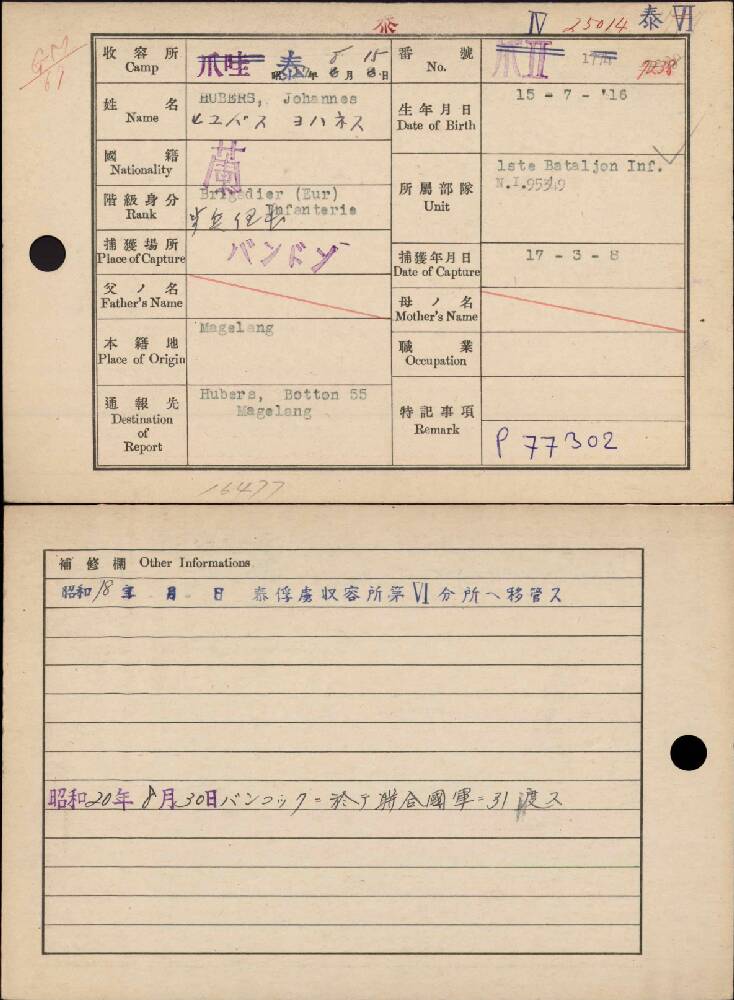 泰 IV 25014 泰 VI
GM
67
收容所 Camp 爪哇 泰 昭 年 8 月 15 日 番號 No. 爪II 7238
姓名 Name HUBERS, Johannes
ヒユバス ヨハネス
生年月日 Date of Birth 15 - 7 - '16
國籍 Nationality 蘭
階級身分 Rank Brigadier (Eur)
Infanterie
所屬部隊 Unit 1ste Bataljon Inf.
N.I.95349
捕獲場所 Place of Capture バンドン
捕獲年月日 Date of Capture 17 - 3 - 8
父ノ名 Father's Name
母ノ名 Mother's Name
本籍地 Place of Origin Magelang
職業 Occupation
通報先 Destination of Report Hubers, Botton 55
Magelang
特記事項 Remark P 77302
16477
補修欄 Other Informations
昭和18年 月 日 泰俘虜収容所第VI分所ヘ移管ス
昭和20年8月30日バンコックニ於テ聯合國軍ニ引渡ス